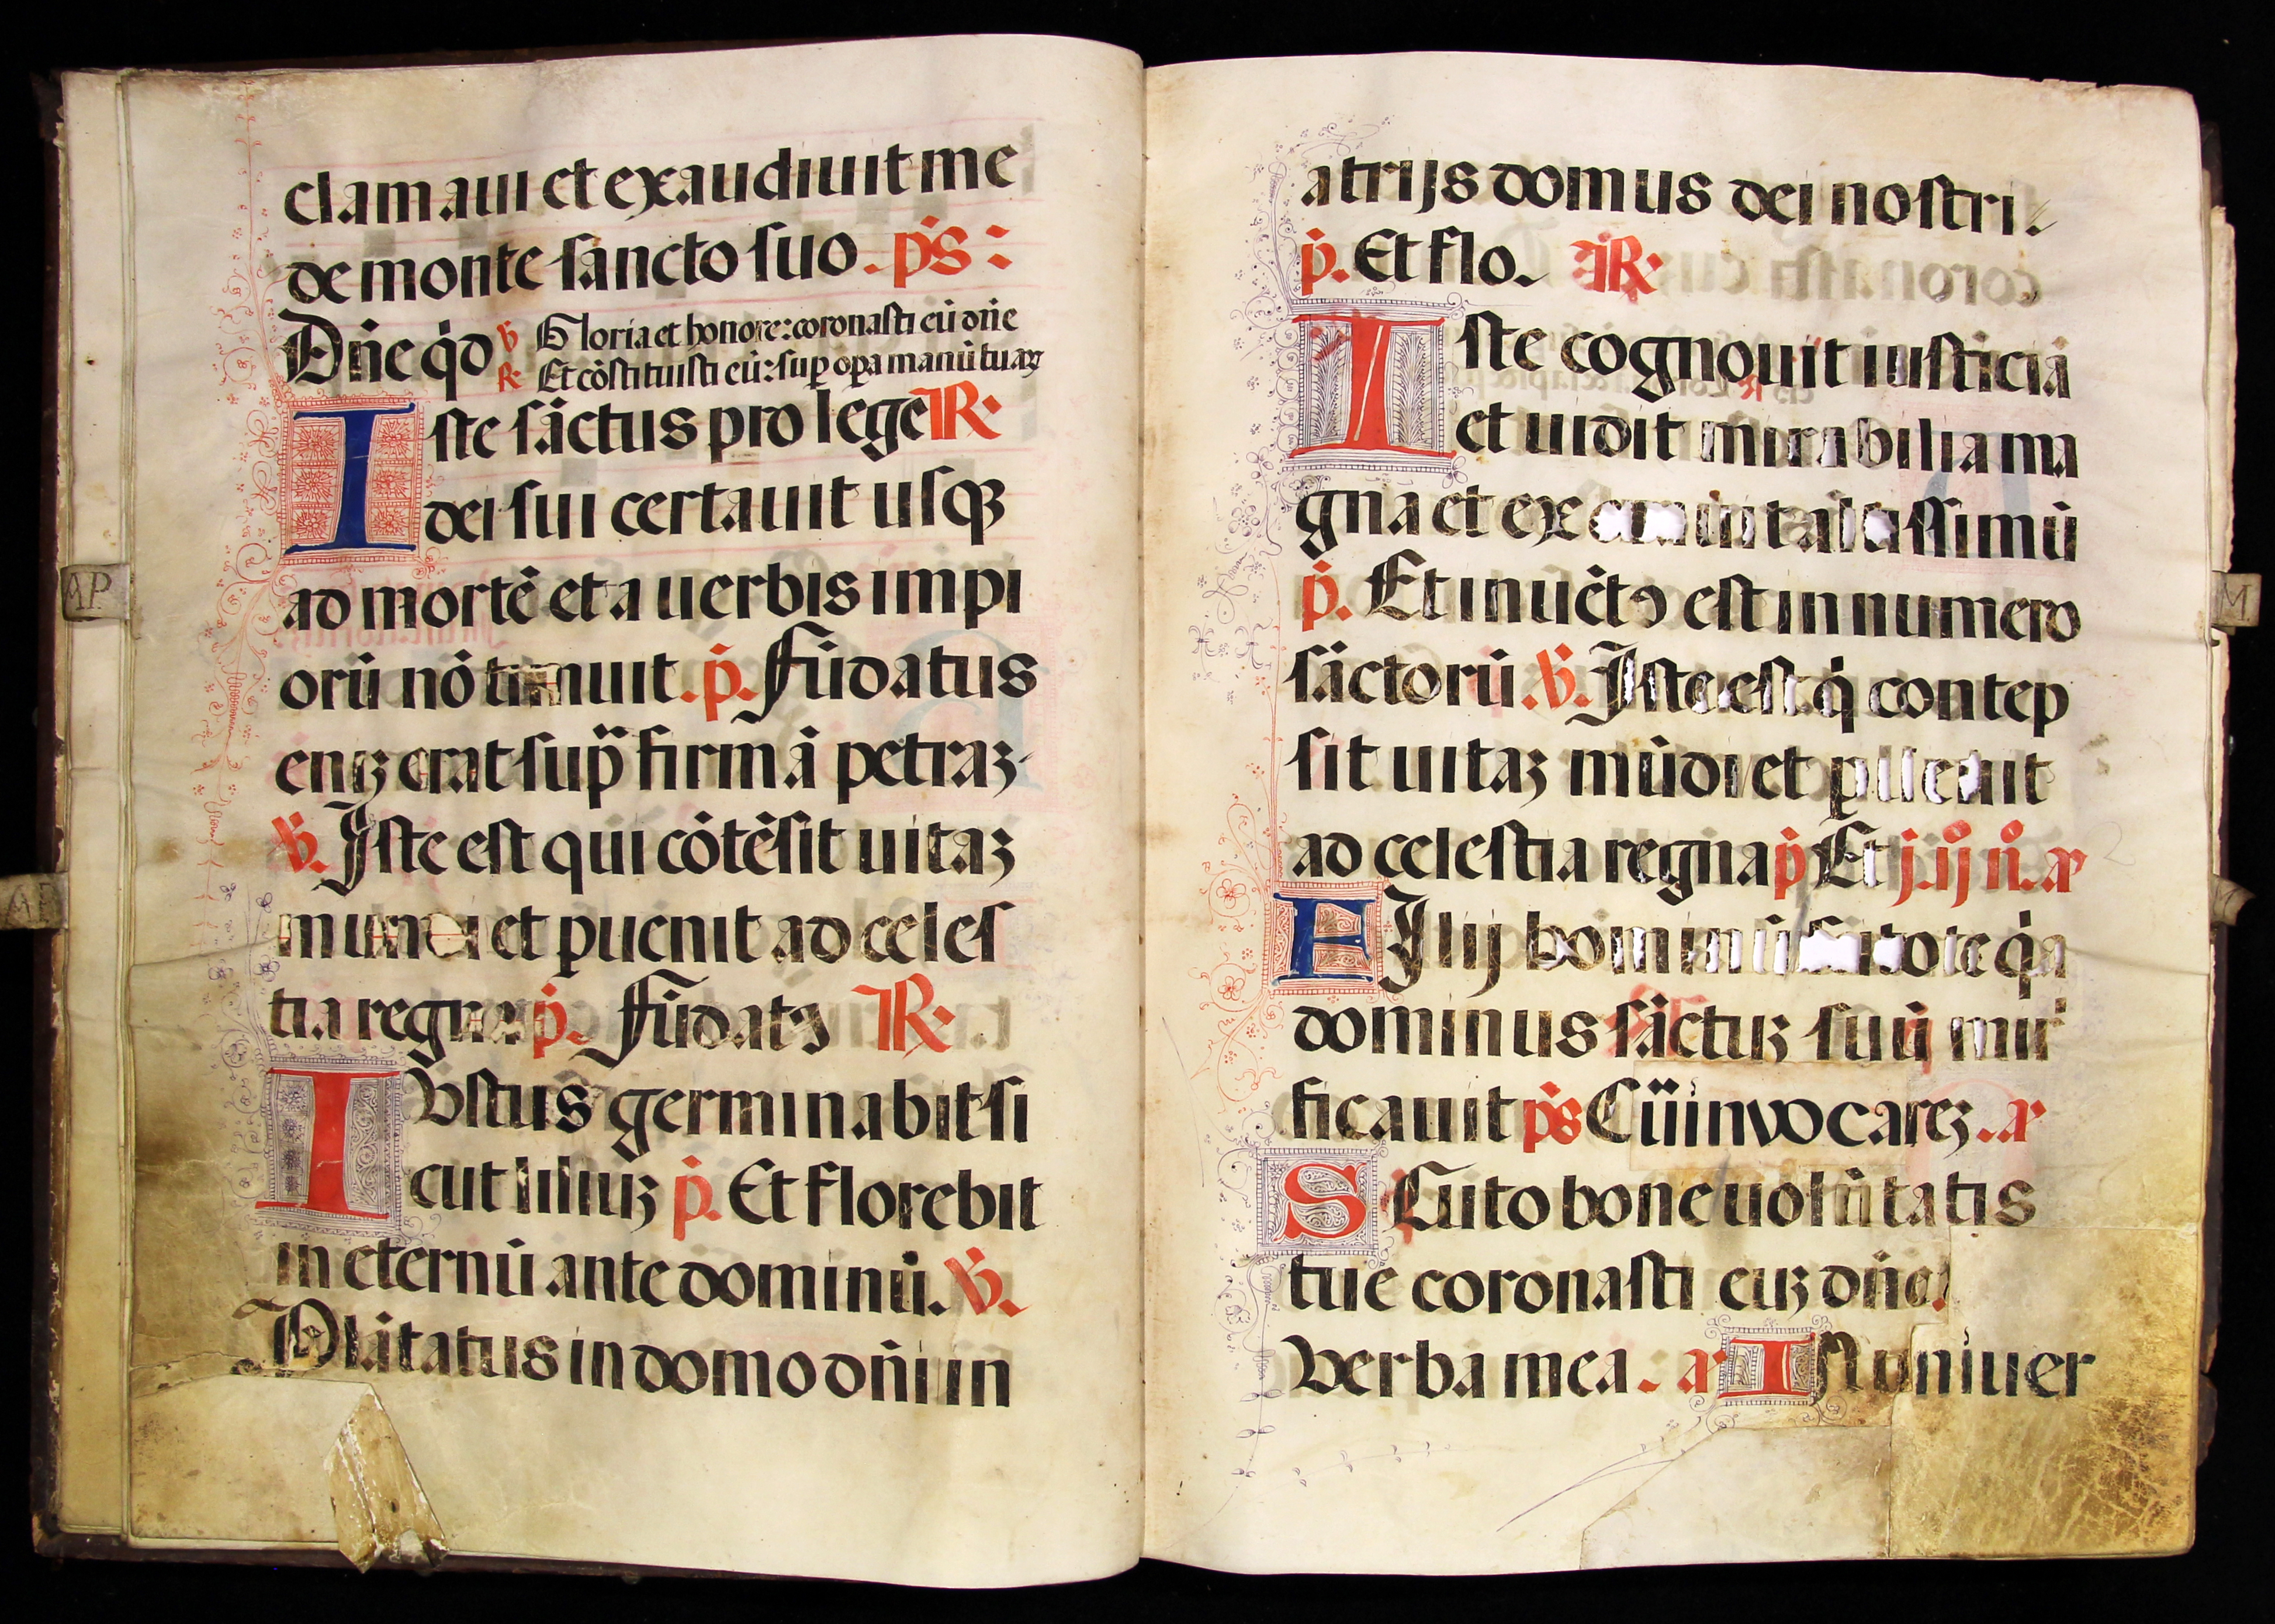 clamaui et exaudiuit me
de monte sancto suo. ps:
Dñe qd ℣ Gloria et honore: coronasti eū dñe
℟ Et cōstituisti eū: sup opa manū tuaꝝ
Iste sāctus pro lege ℟
dei sui certauit usqꝫ
ad mortē et a uerbis impi
orū nō timuit. p. Fūdatus
enіꝫ erat sup firmā petraꝫ
℣. Iste est qui cōtēsit uitaꝫ
mundi et puenit ad celes
tia regna p. Fūdatꝰ ℟
IVstus germinabit si
cut liliuꝫ p. Et florebit
in eternū ante dominū. ℣.
Plātatus in domo dñi in
AP
atrijs domus dei nostri.
p. Et flo. ℟
Iste cognouit iusticiā
et uidit mirabilia ma
gna et exorauit altissimū
p. Et inuētꝰ est in numero
sāctorū. ℣. Iste est q contep
sit uitaꝫ mūdi et puenit
ad celestia regna p Et j. ij n. añ
FIlij hominū scitote qa
dominus sāctuꝫ suū miri
ficauit ps Cū inuocareꝫ. añ
SCuto bone uolūtatis
tue coronasti euꝫ dñe
Verba mea. añ IN uniuer
M